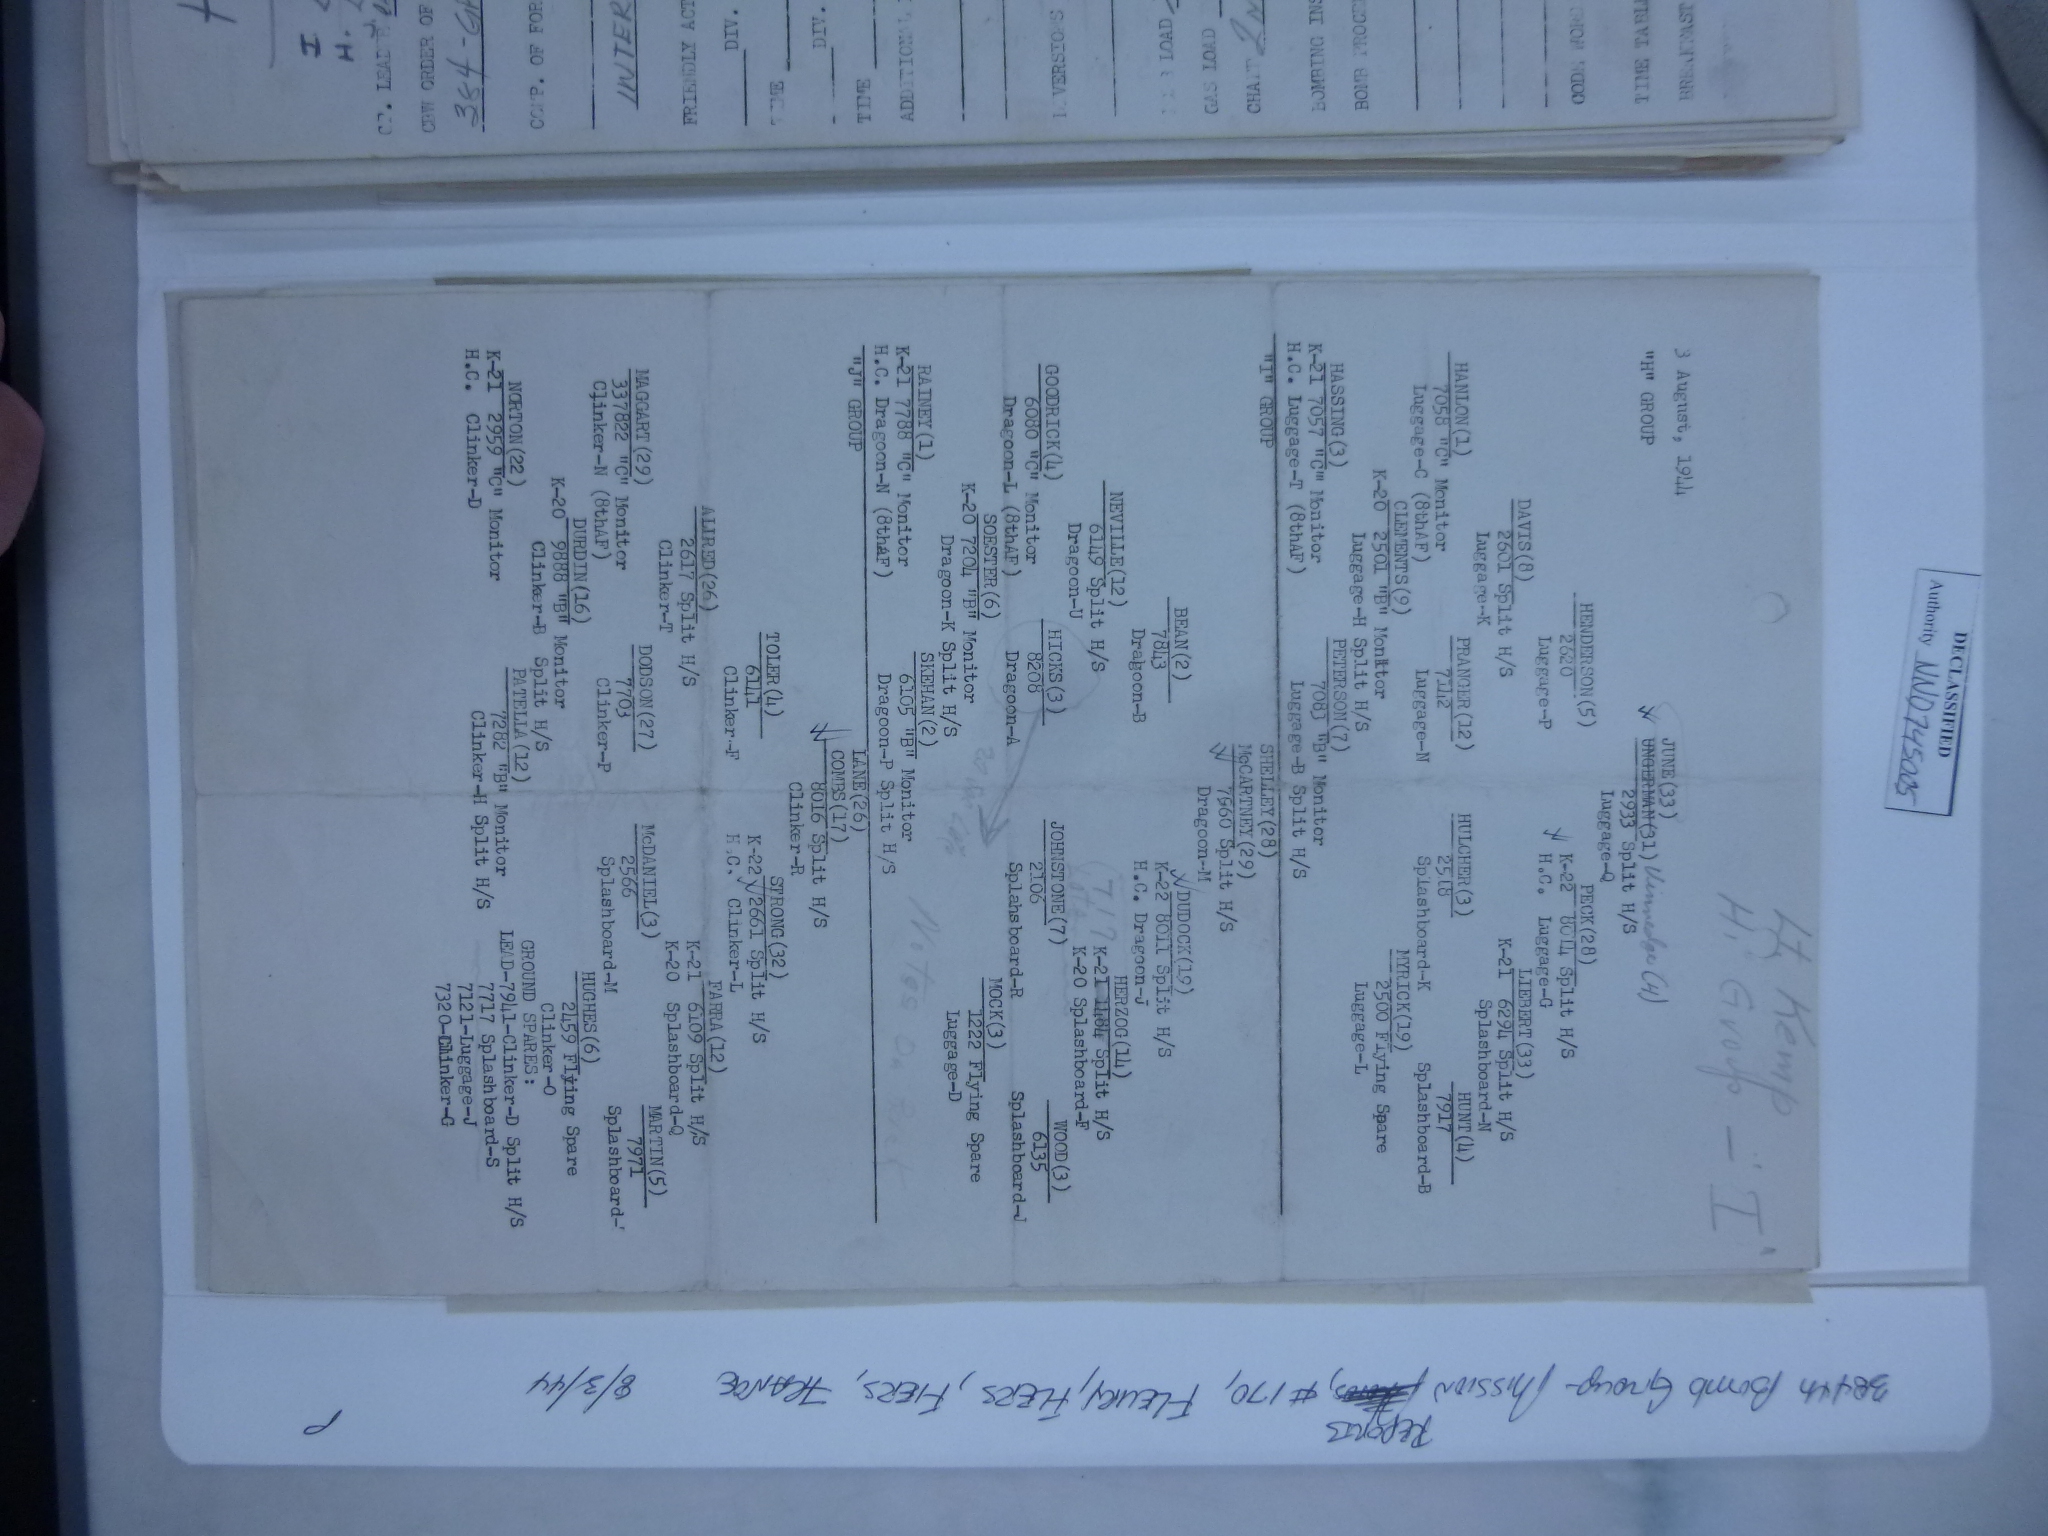 DECLASSIFIED
Authority NND745005
Lt Kemp
Hi Group - "I"
3 August, 1944
"H" GROUP
JUNE(33)
UNGERMAN(31) (4)
2933 Split H/S
Luggage-Q
HENDERSON(5)
2620
Luggage-P
PECK(28)
K-22 8044 Split H/S
H.C. Luggage-G
DAVIS(8)
2601 Split H/S
Luggage-K
LIEBERT(33)
K-21 6294 Split H/S
Splashboard-N
HANLON(1)
7058 "C" Monitor
Luggage-C (8thAF)
PRANGER(12)
7142
Luggage-N
HULCHER(3)
2518
Splashboard-K
HUNT(4)
7917
Splashboard-B
CLEMENTS(9)
K-20 2501 "B" Monitor
Luggage-H Split H/S
MYRICK(19)
2500 Flying Spare
Luggage-L
HASSING(3)
K-21 7057 "C" Monitor
H.C. Luggage-T (8thAF)
PETERSON(7)
7083 "B" Monitor
Luggage-B Split H/S
"I" GROUP
SHELLEY(28)
McCARTNEY(29)
7960 Split H/S
Dragoon-M
BEAN(2)
7843
Dragoon-B
DUDOCK(19)
K-22 8011 Split H/S
H.C. Dragoon-J
NEVILLE(12)
6149 Split H/S
Dragoon-U
HERZOG(14)
K-21 1484 Split H/S
K-20 Splashboard-F
GOODRICK(4)
6080 "C" Monitor
Dragoon-L (8thAF)
HICKS(3)
8208
Dragoon-A
JOHNSTONE(7)
2106
Splahsboard-R
WOOD(3)
6135
Splashboard-J
SOESTER(6)
K-20 7204 "B" Monitor
Dragoon-K Split H/S
MOCK(3)
1222 Flying Spare
Luggage-D
RAINEY(1)
K-21 7788 "C" Monitor
H.C. Dragoon-N (8thAF)
SKEHAN(2)
6105 "B" Monitor
Dragoon-P Split H/S
Notes On Back
"J" GROUP
LANE(26)
COMBS(17)
8016 Split H/S
Clinker-R
TOLER(4)
6141
Clinker-F
STRONG(32)
K-22 2661 Split H/S
H.C. Clinker-L
ALLRED(26)
2617 Split H/S
Clinker-T
FARRA(12)
K-21 6109 Split H/S
K-20 Splashboard-Q
MAGGART(29)
337822 "C" Monitor
Clinker-N (8thAF)
DODSON(27)
7703
Clinker-P
McDANIEL(3)
2566
Splashboard-M
MARTIN(5)
7971
Splashboard-
DURDIN(16)
K-20 9888 "B" Monitor
Clinker-B Split H/S
HUGHES(6)
2459 Flying Spare
Clinker-O
NORTON(22)
K-21 2959 "C" Monitor
H.C. Clinker-D
PATELLA(12)
7282 "B" Monitor
Clinker-H Split H/S
GROUND SPARES:
LEAD-7941-Clinker-D Split H/S
7717 Splashboard-S
7121-Luggage-J
7320-Clinker-G
384th Bomb Group Mission Reports, #170, Fleury, FLERS, FIERS, FRANCE 8/3/44
P
OWN ORDER OF
384 - 
COMP. OF FOR
INTER
FRIENDLY ACT
DIV.
DIV.
TIME
TIME
ADDITION
LOAD
GAS LOAD
CHAFF
BOMBING INS
BOMB PROCE
CODE WOR
TIME TABL
BREAKFAST